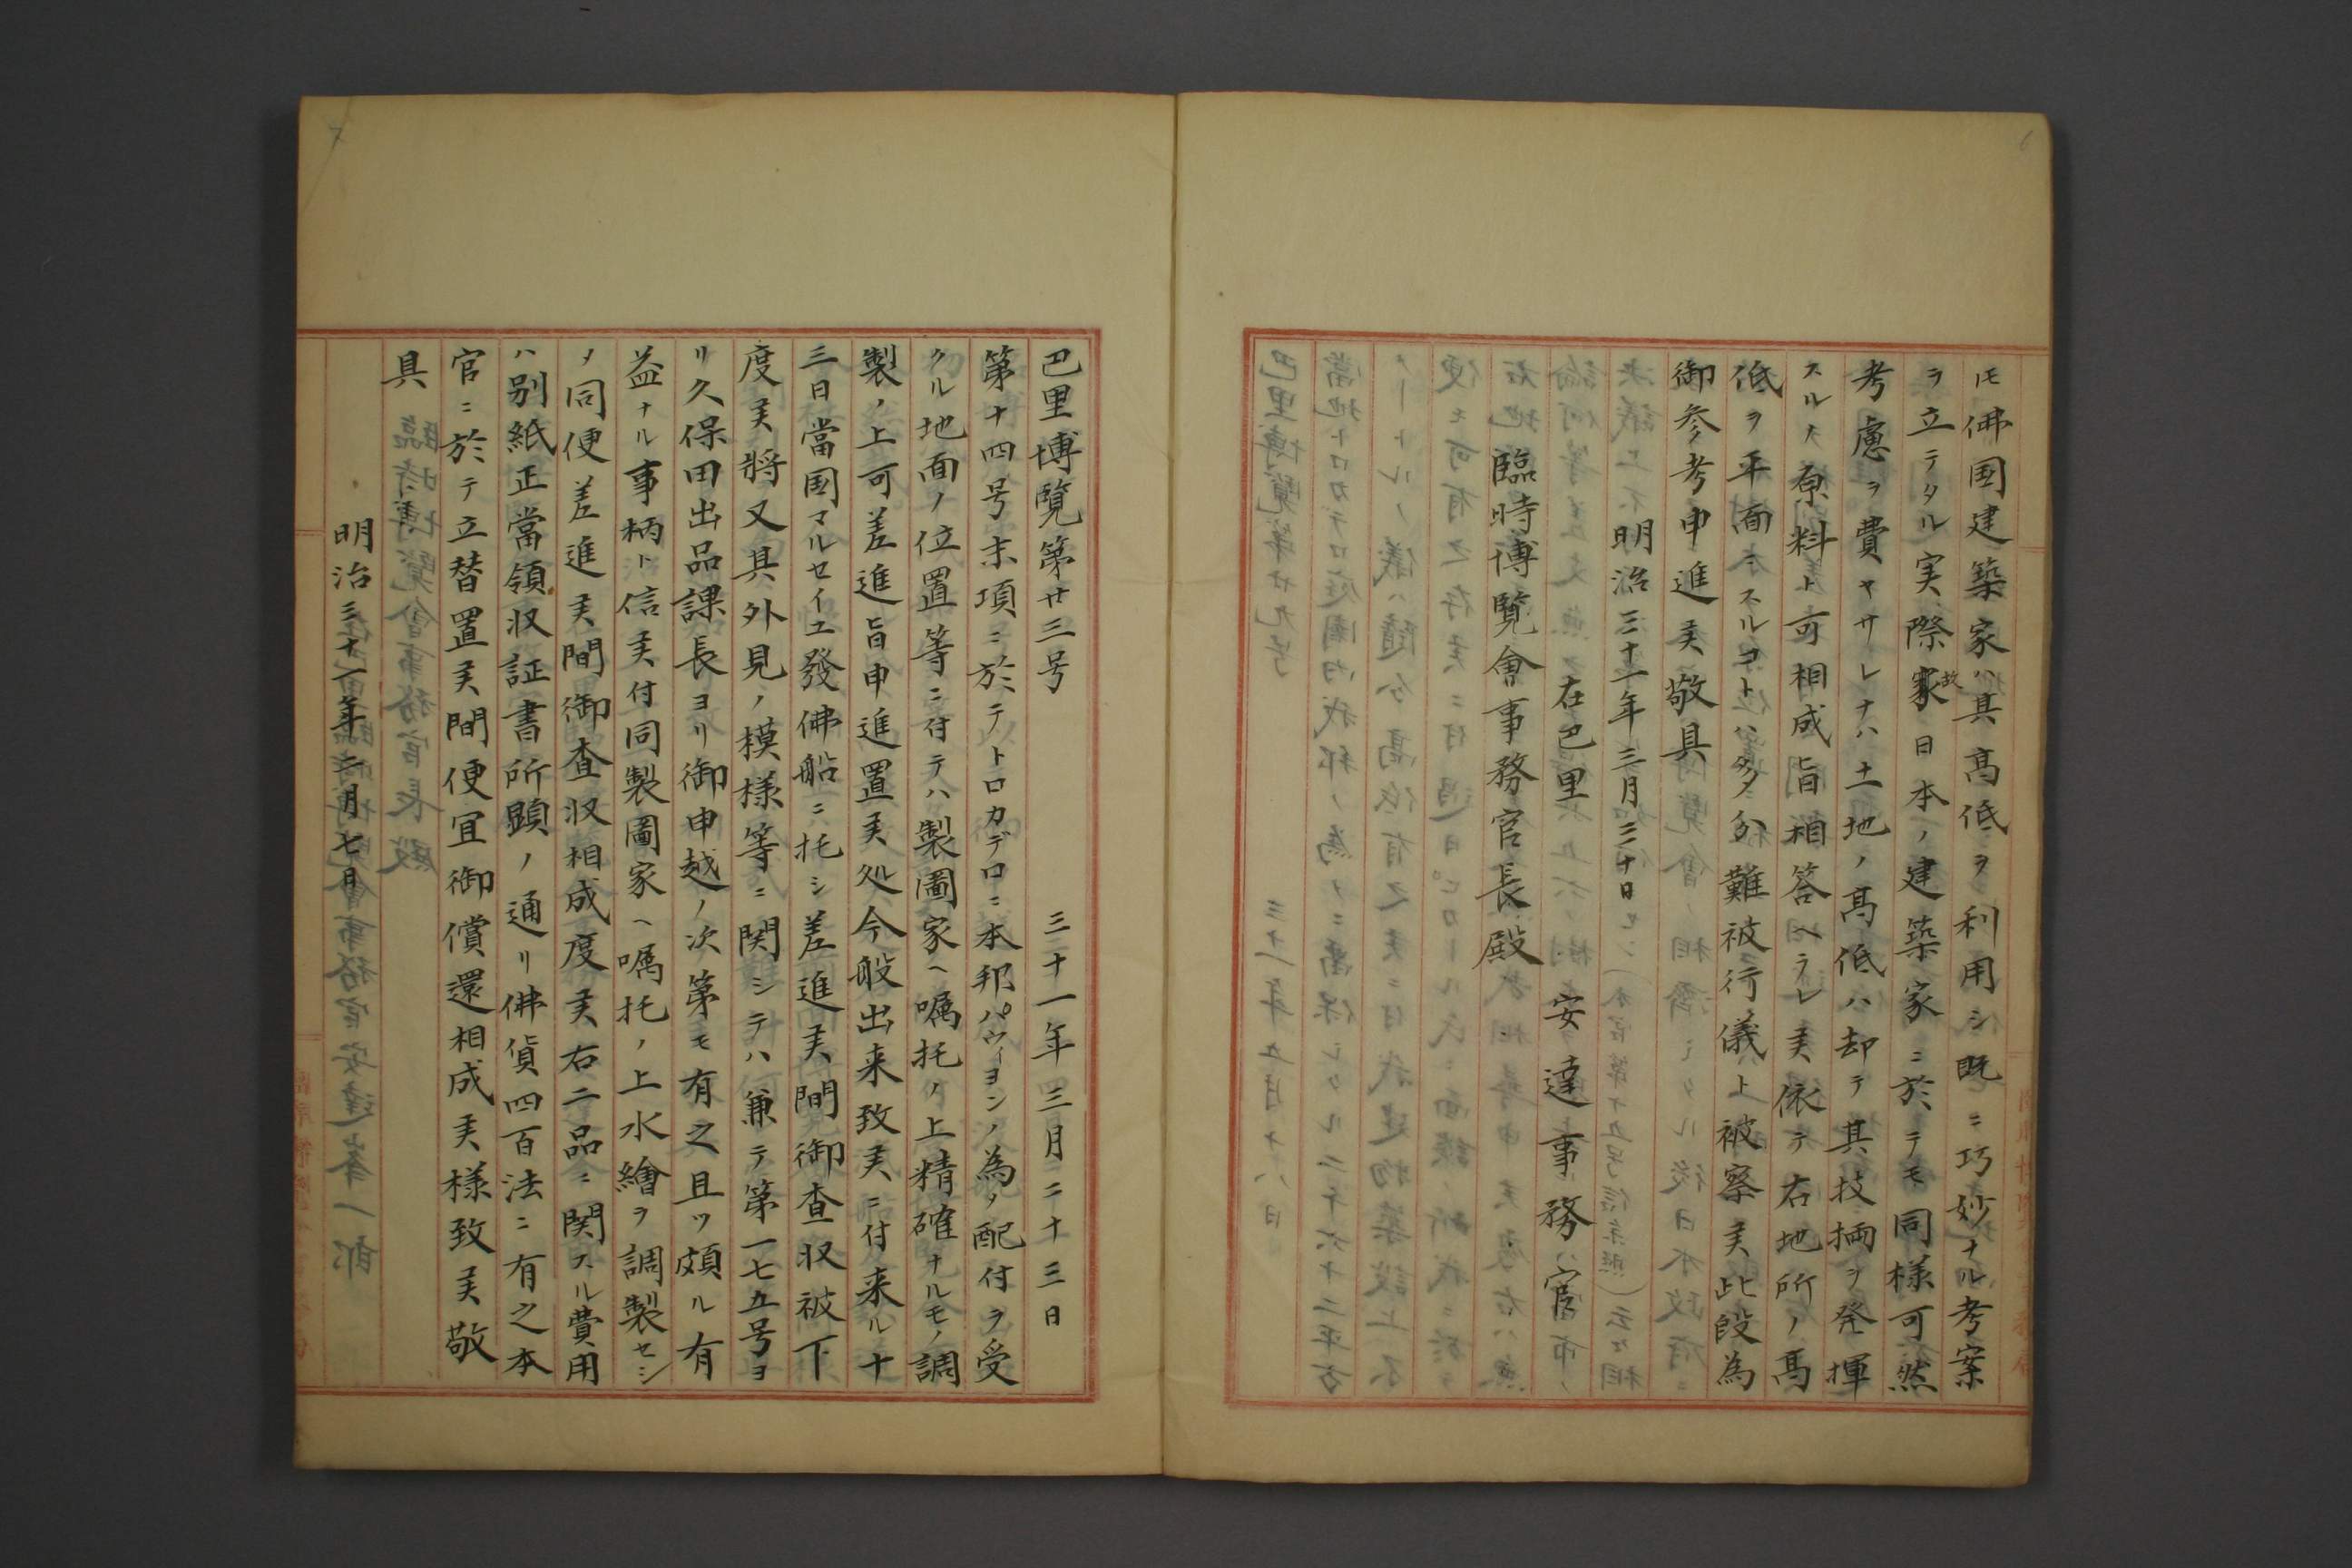 ﾓ佛国建築家ハ其高低ヲ利用シ既ニ巧妙ナル考案
ヲ立テタル実際家故日本ノ建築家ニ於テモ同様可然
考慮ヲ費ヤサレナハ土地ノ高低ハ却テ其技倆ヲ発揮
スルノ原料ト可相成旨相答ヘラレ候依テ右地所ノ高
低ヲ平面ニスルコトハ多分難被行儀ト被察候此段為
御参考申進候敬具
明治三十一年三月三十日
在巴里 安達事務官
臨時博覧會事務官長殿
巴里博覧第廿三号 三十一年三月二十三日
第十四号末項ニ於テトロカデロニ本邦パヴィヨンノ為ノ配付ヲ受
クル地面ノ位置等ニ付テハ製圖家ヘ嘱托ノ上精確ナルモノ調
製ノ上可差進旨申進置候処今般出来致候ニ付来ル十
三日當国マルセイエ發佛船ニ托シ差進候間御査収被下
度候将又其外見ノ模様等ニ関シテハ兼テ第一七五号ヨ
リ久保田出品課長ヨリ御申越ノ次第モ有之且ツ頗ル有
益ナル事柄ト信候付同製圖家ヘ嘱托ノ上水繪ヲ調製セシ
メ同便差進候間御査収相成度候右二品ニ関スル費用
ハ別紙正當領収証書所顕ノ通リ佛貨四百法ニ有之本
官ニ於テ立替置候間便宜御償還相成候様致候敬
具
明治三十一年二月七日